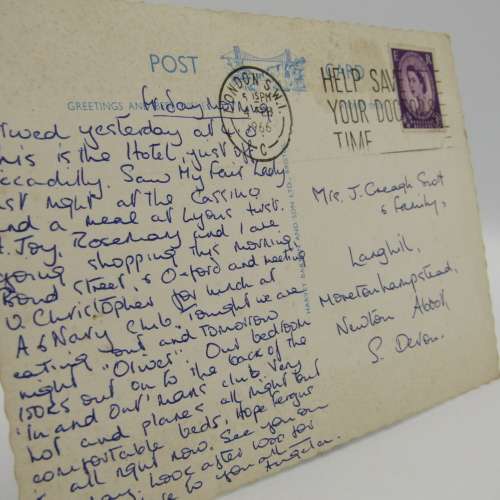 POST CARD
GREETINGS AND
LONDON S.W.1.
PM
1966
C
HELP SAVE
YOUR DOCTORS
TIME
Friday
yesterday at 4.0
This is the Hotel, just off
Piccadilly. Saw My Fair Lady
last night at the Cassino
and a meal at Lyons first.
Joy, Rosemary and I are
going shopping this morning
Bond Street, & Oxford and meeting
U. Christopher for lunch at
A & Navy Club. Tonight we are
eating out and tomorrow
night "Oliver". Our bedroom
looks out on to the back of the
'In and Out' mans club. Very
hot and planes all night but
comfortable beds. Hope Fergus
is all right now. See you on
Look after
to you all
Angela.
AND SON LTD.
Mrs. J. Creagh Scot
& family,
Langhill,
Moretonhampstead,
Newton Abbot
S. Devon.